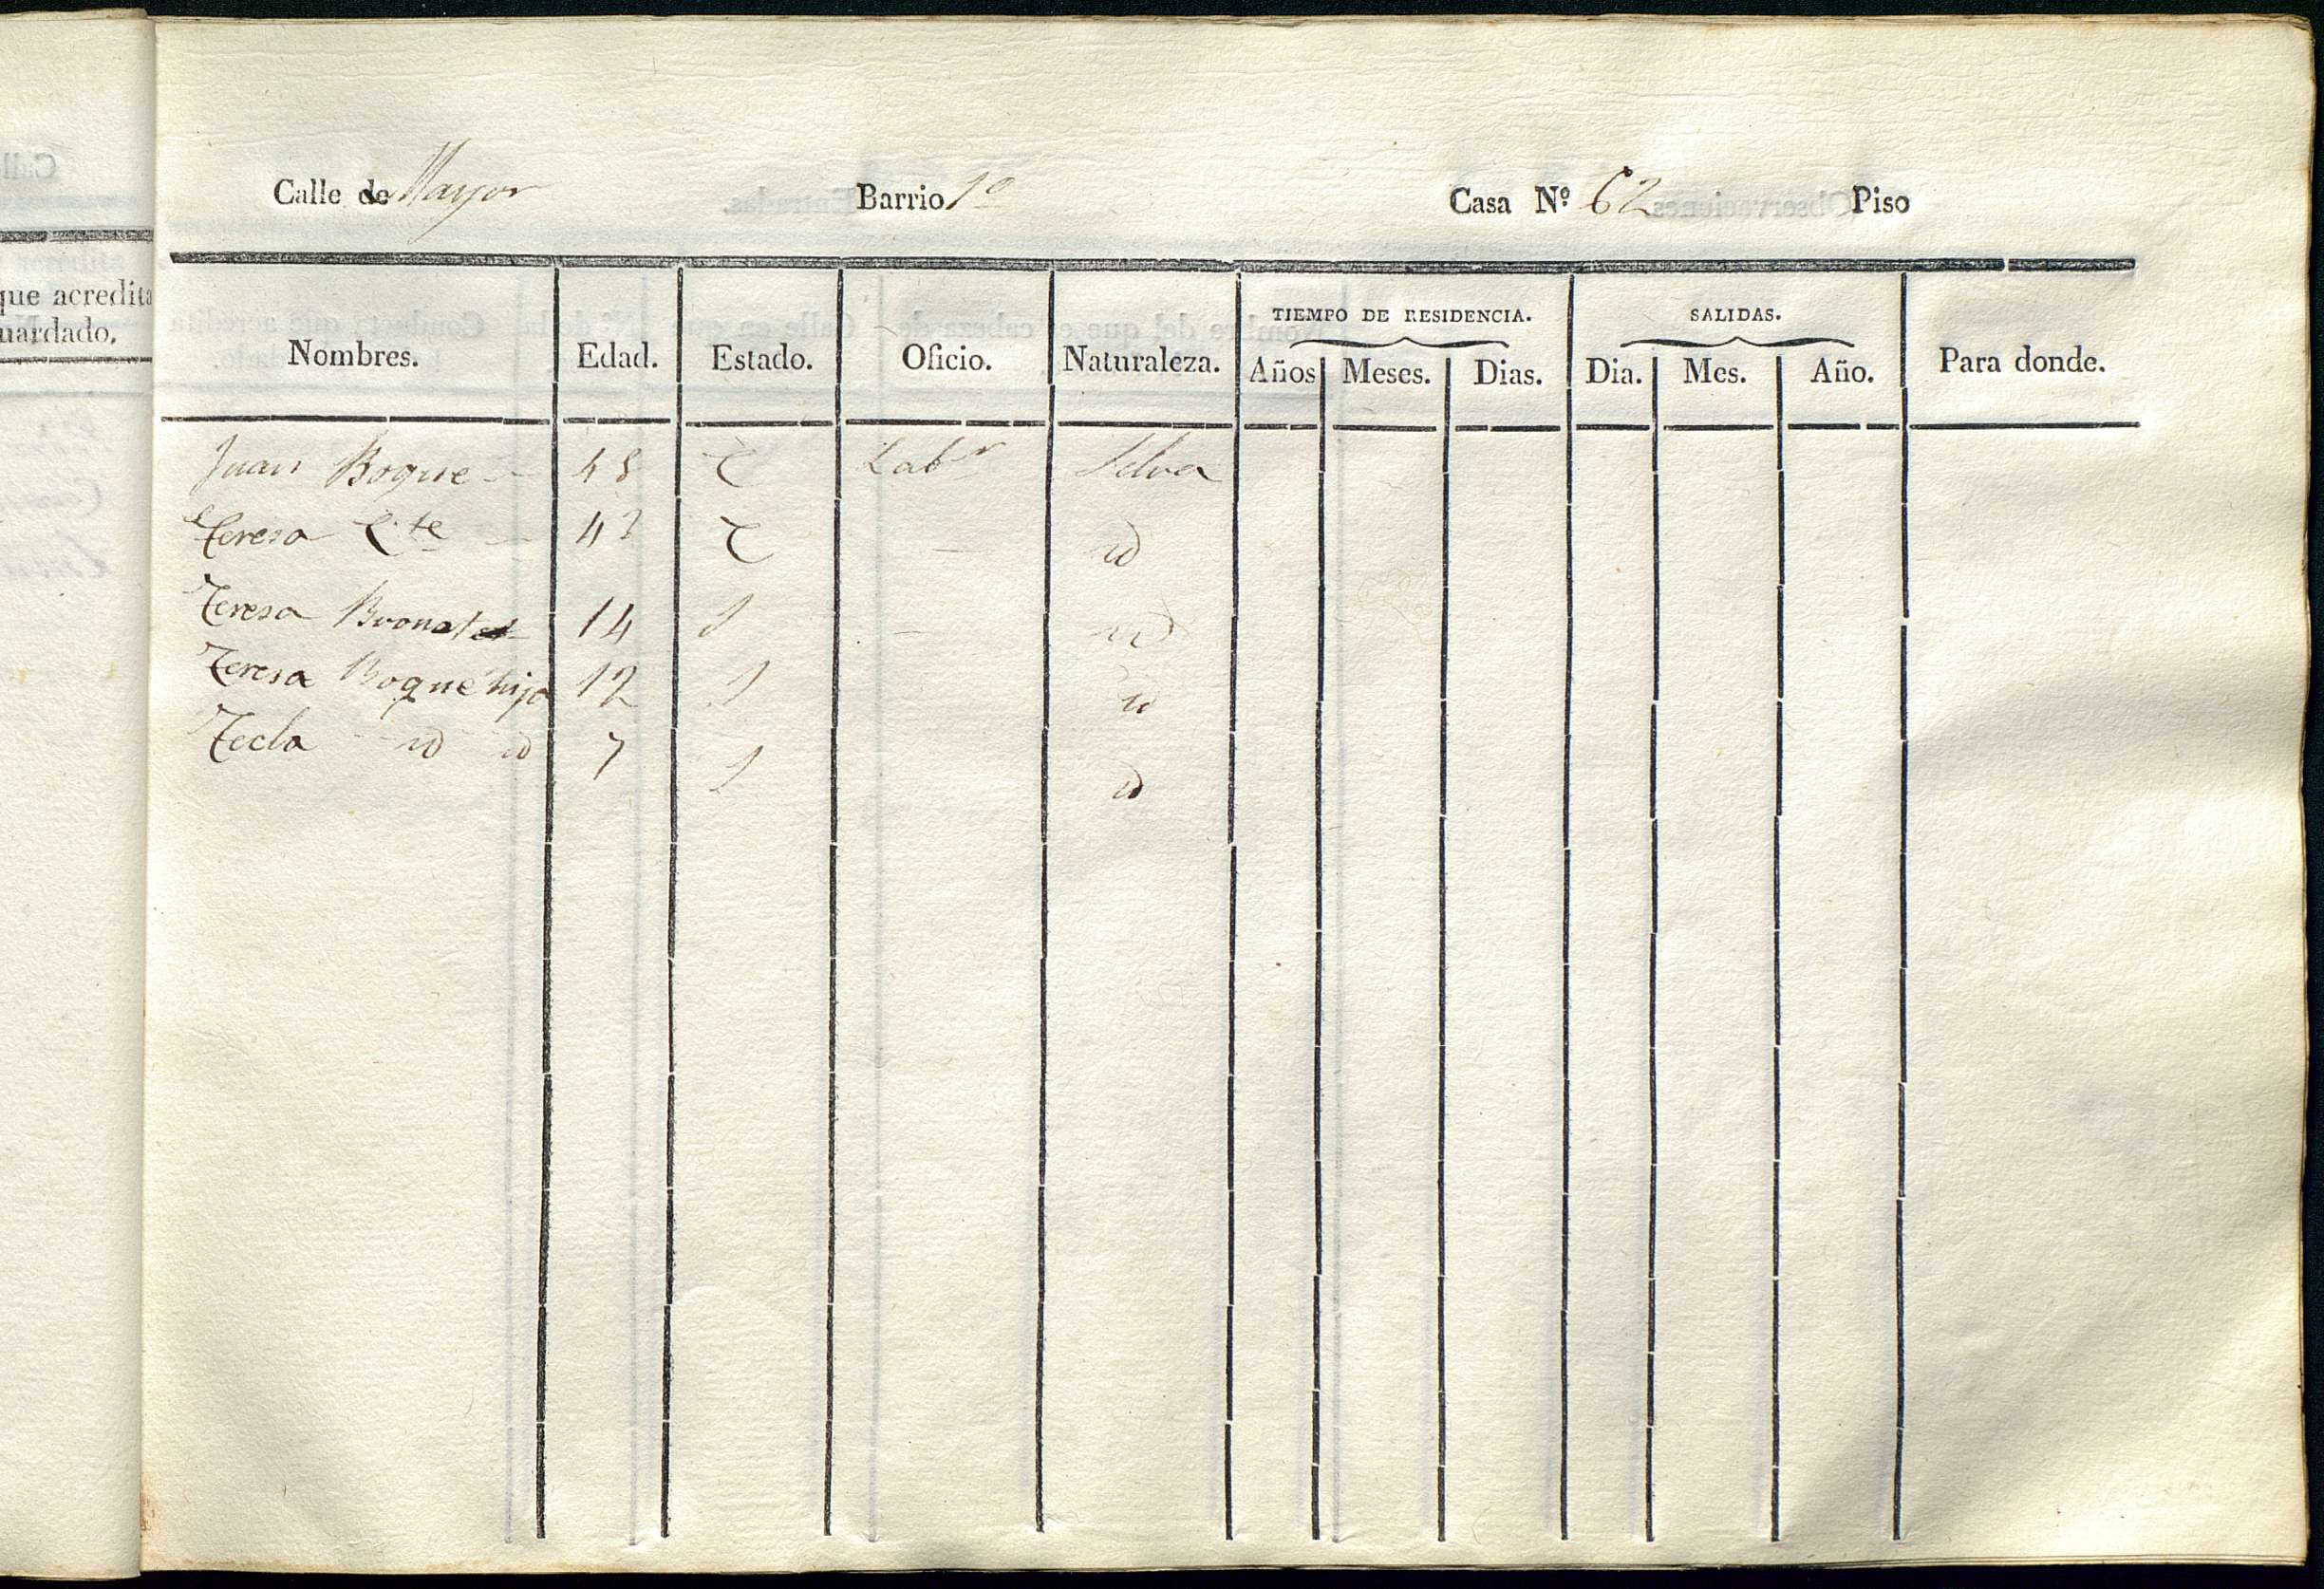 que acredita
uardado.
Calle de Mayor Barrio 1º Casa Nº 62 Piso
TIEMPO DE RESIDENCIA. SALIDAS.
Nombres. Edad. Estado. Oficio. Naturaleza. Años Meses. Dias. Dia. Mes. Año. Para donde.
Juan Boque 48 C Labr Selva
Teresa 43 C id
Teresa 14 S id
Teresa Boque hija 12 S id
Tecla id id 7 S id